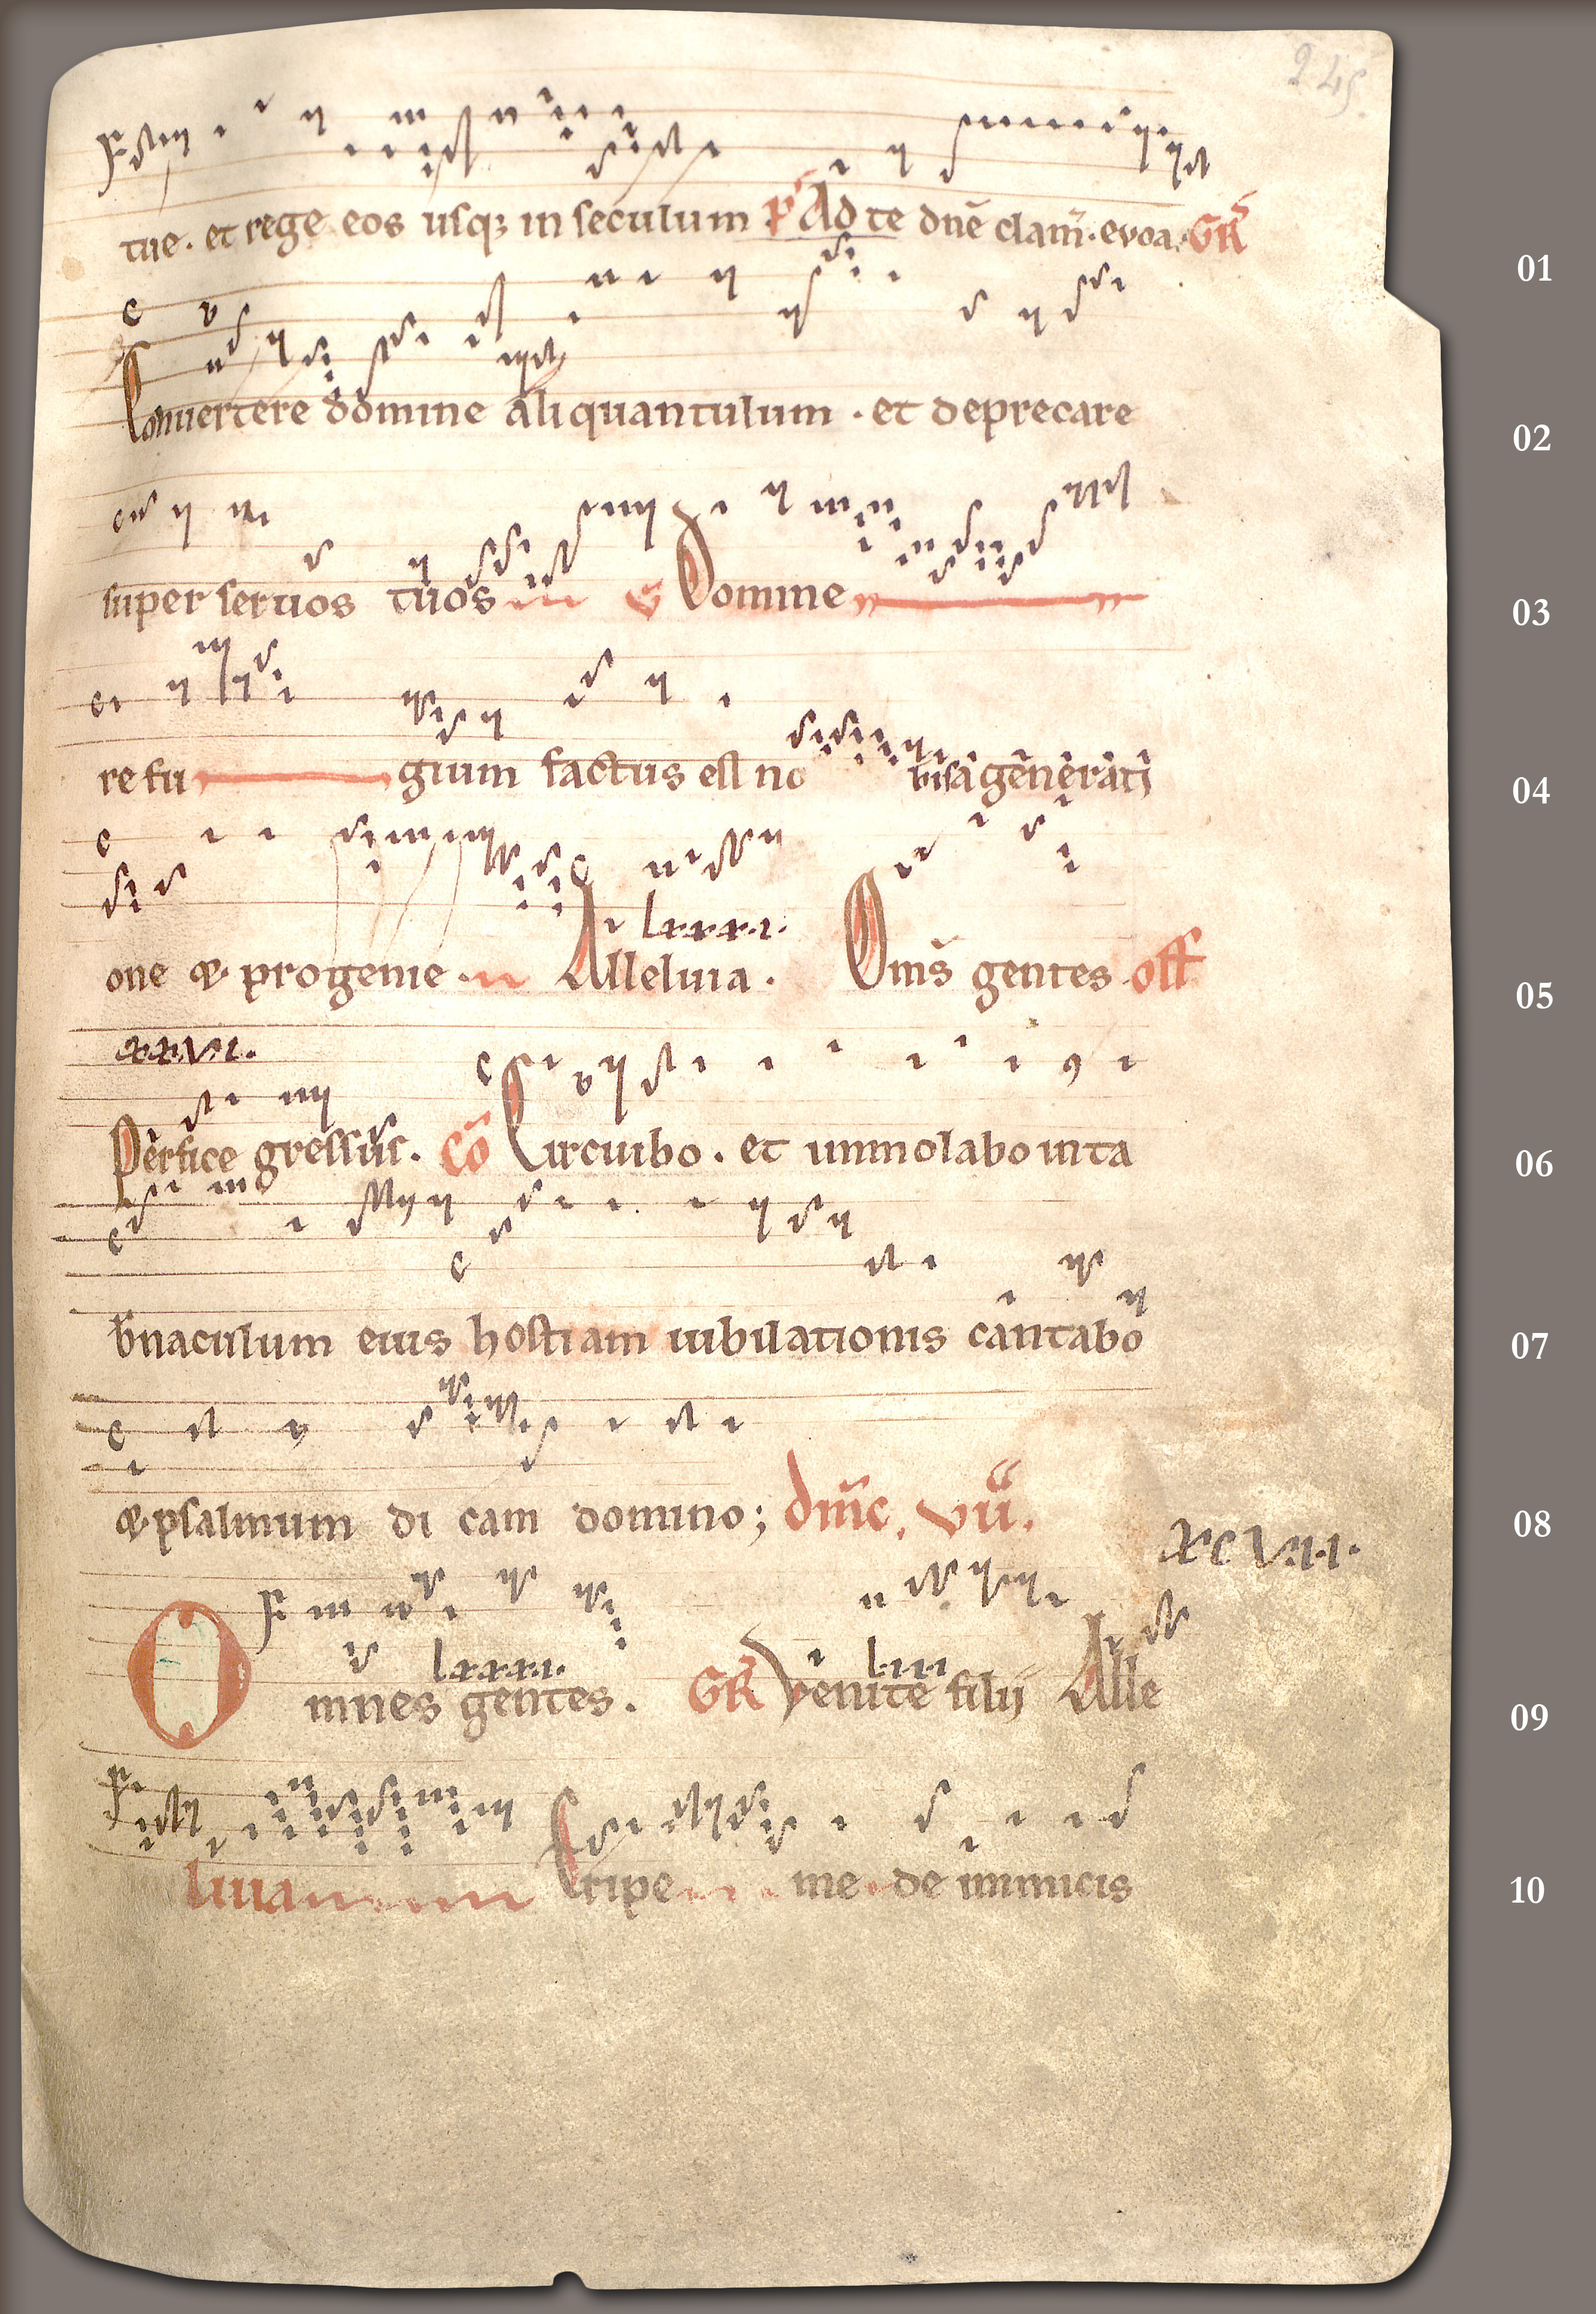 245.
tue. et rege eos usq; in seculum P̄ Ad te dnē clam̄. evoa. GR̄
01
Conuertere domine aliquantulum. et deprecare
02
super seruos tuos V Domine
03
refu gium factus est no bis a generati
04
lxxxi.
one & progenie. Alleluia. Om̄s gentes. off
05
xxvi.
Perfice gressus. Cō Circuibo. et immolabo in ta
06
b̄naculum eius hostiam iubilationis cantabo
07
& psalmum di cam domino; dn̄ic. vii.
08
xcvii.
lxxxi. liii
Omnes gentes. GR̄ Venite filii Alle
09
luia Eripe me de inimicis
10